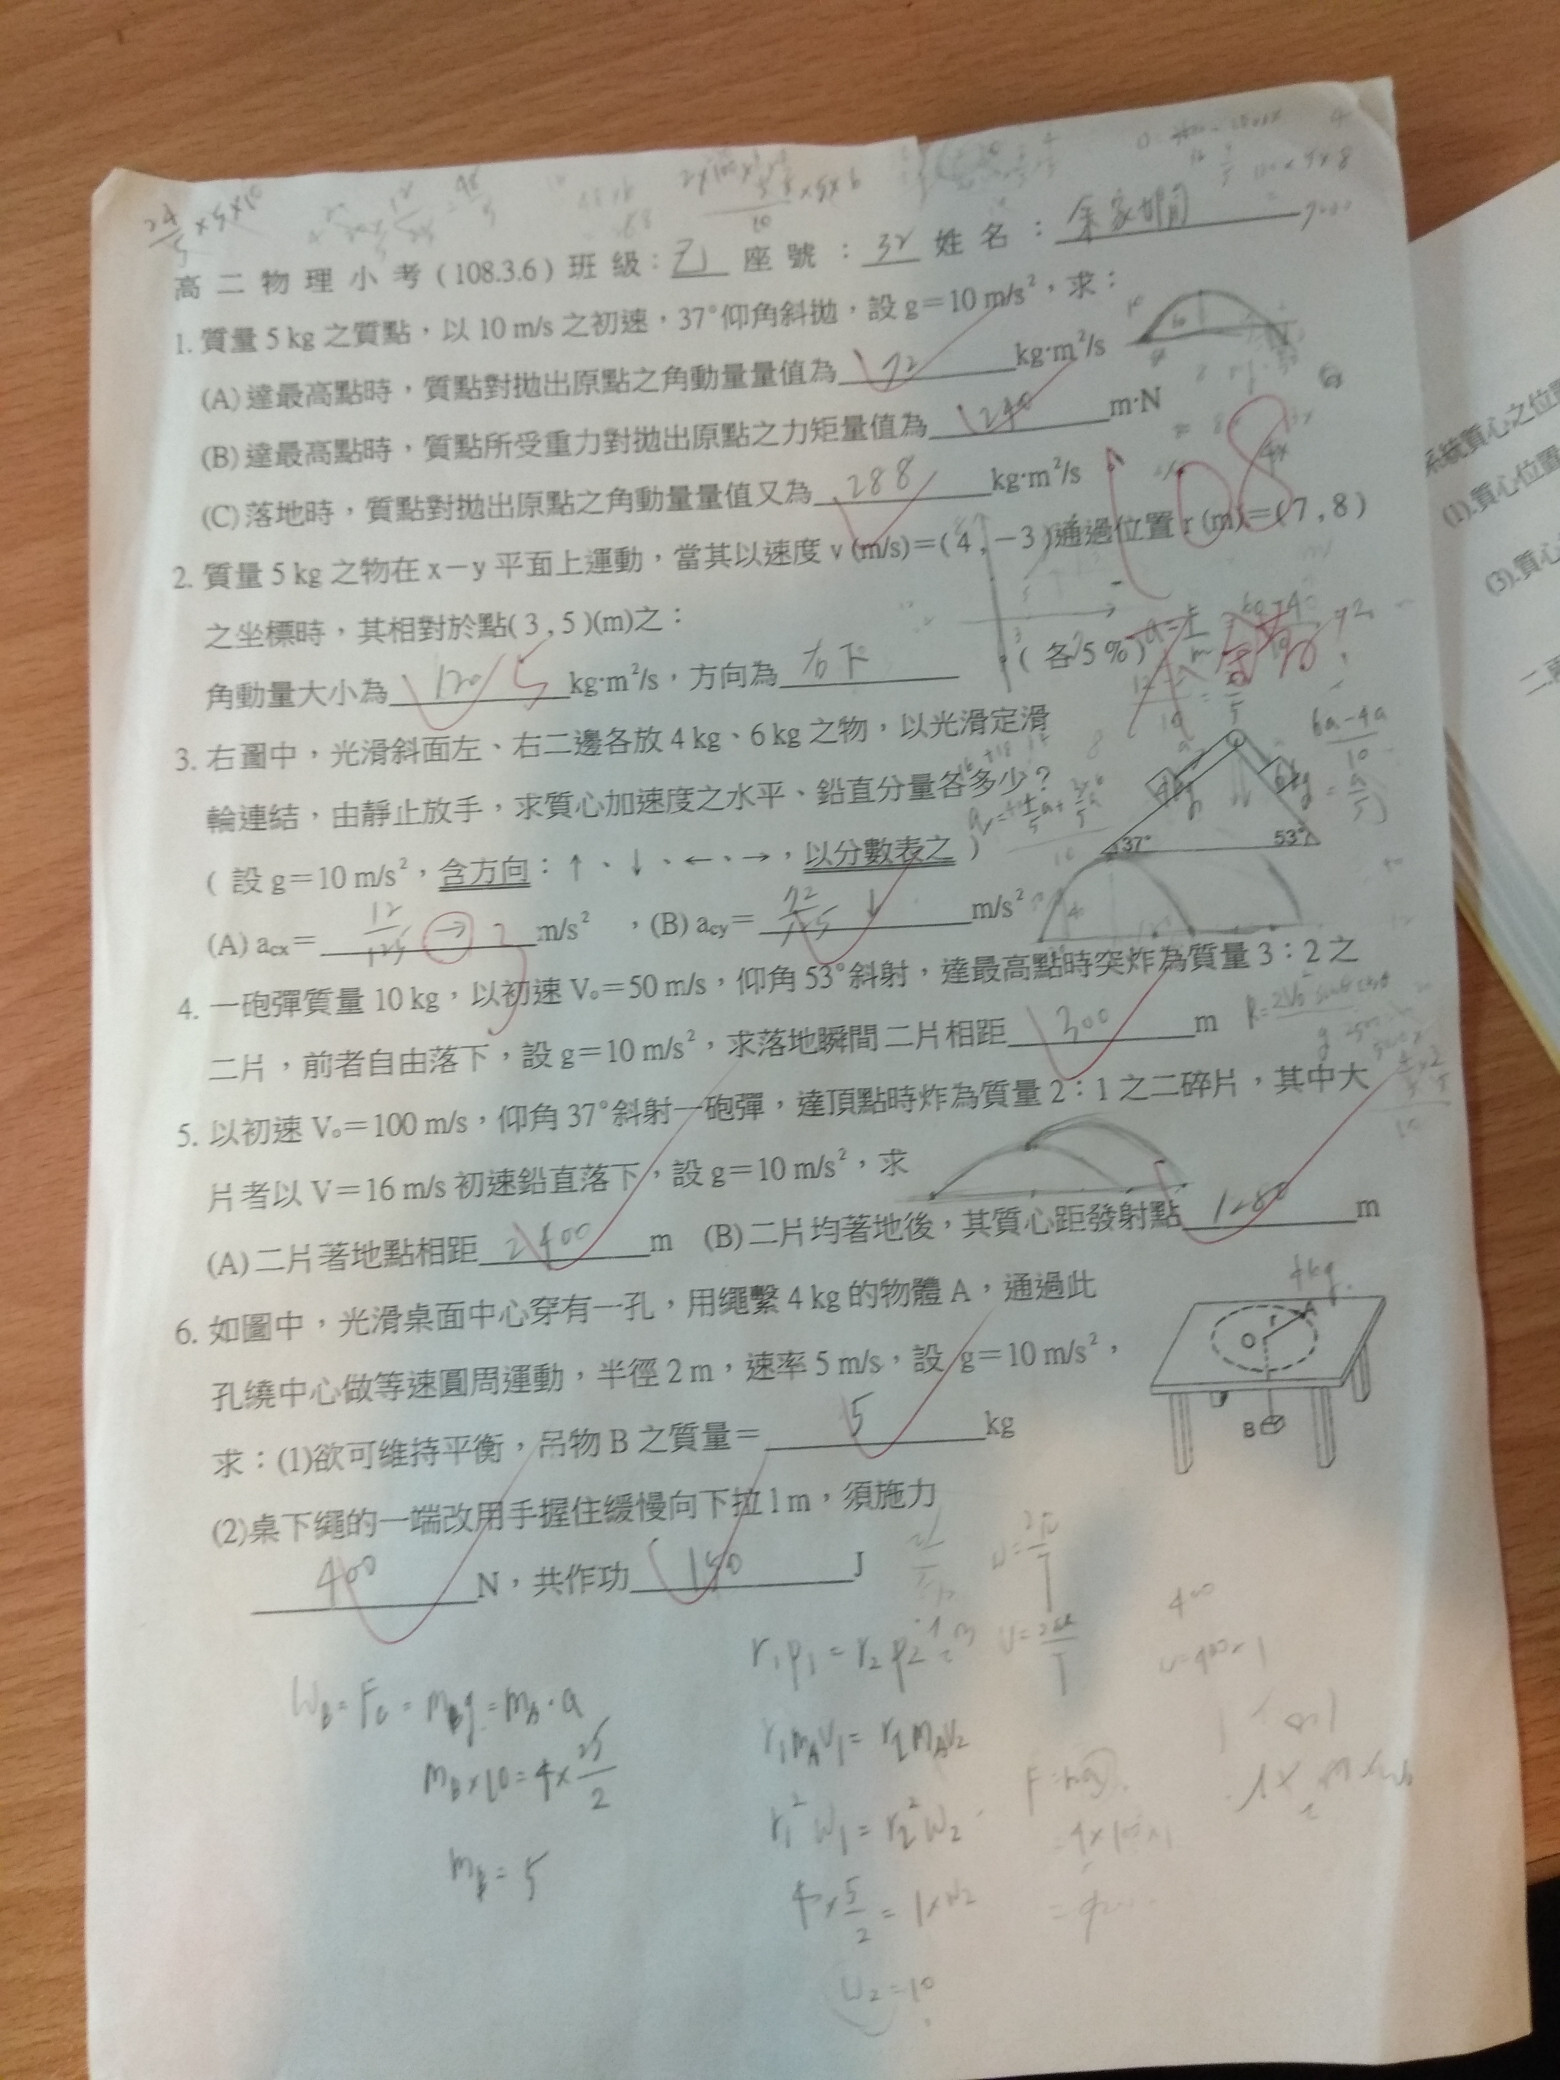 高二物理小考(108.3.6)班級:乙 座號:32 姓名:余家嫺
1. 質量 5 kg 之質點,以 10 m/s 之初速,37°仰角斜拋,設 g=10 m/s²,求:
(A)達最高點時,質點對拋出原點之角動量量值為 72 kg·m²/s
(B)達最高點時,質點所受重力對拋出原點之力矩量值為 240 m·N
(C)落地時,質點對拋出原點之角動量量值又為 288 kg·m²/s
108
2. 質量 5 kg 之物在 x-y 平面上運動,當其以速度 v (m/s)=(4,-3)通過位置 r (m)=(7,8)
之坐標時,其相對於點(3,5)(m)之: (各 5%)
角動量大小為 120 kg·m²/s,方向為 右下
3. 右圖中,光滑斜面左、右二邊各放 4 kg、6 kg 之物,以光滑定滑
輪連結,由靜止放手,求質心加速度之水平、鉛直分量各多少?
(設 g=10 m/s²,含方向:↑、↓、←、→,以分數表之)
4kg 6kg
37° 53°
(A) acx= 12/125 → m/s²,(B) acy= 72/125 ↓ m/s²
4. 一砲彈質量 10 kg,以初速 V₀=50 m/s,仰角 53°斜射,達最高點時突炸為質量 3:2 之
二片,前者自由落下,設 g=10 m/s²,求落地瞬間二片相距 300 m
5. 以初速 V₀=100 m/s,仰角 37°斜射一砲彈,達頂點時炸為質量 2:1 之二碎片,其中大
片者以 V=16 m/s 初速鉛直落下,設 g=10 m/s²,求
(A)二片著地點相距 2400 m (B)二片均著地後,其質心距發射點 1280 m
6. 如圖中,光滑桌面中心穿有一孔,用繩繫 4 kg 的物體 A,通過此
孔繞中心做等速圓周運動,半徑 2 m,速率 5 m/s,設 g=10 m/s²,
4kg
A
r
O
B
求:(1)欲可維持平衡,吊物 B 之質量= 5 kg
(2)桌下繩的一端改用手握住緩慢向下拉 1 m,須施力
400 N,共作功 150 J
W_B=F_c=m_Bg=m_A·a
m_B×10=4×25/2
m_B=5
r₁p₁=r₂p₂
r₁m_Av₁=r₂m_Av₂
r₁²w₁=r₂²w₂
4×5/2=1×w₂
w₂=10